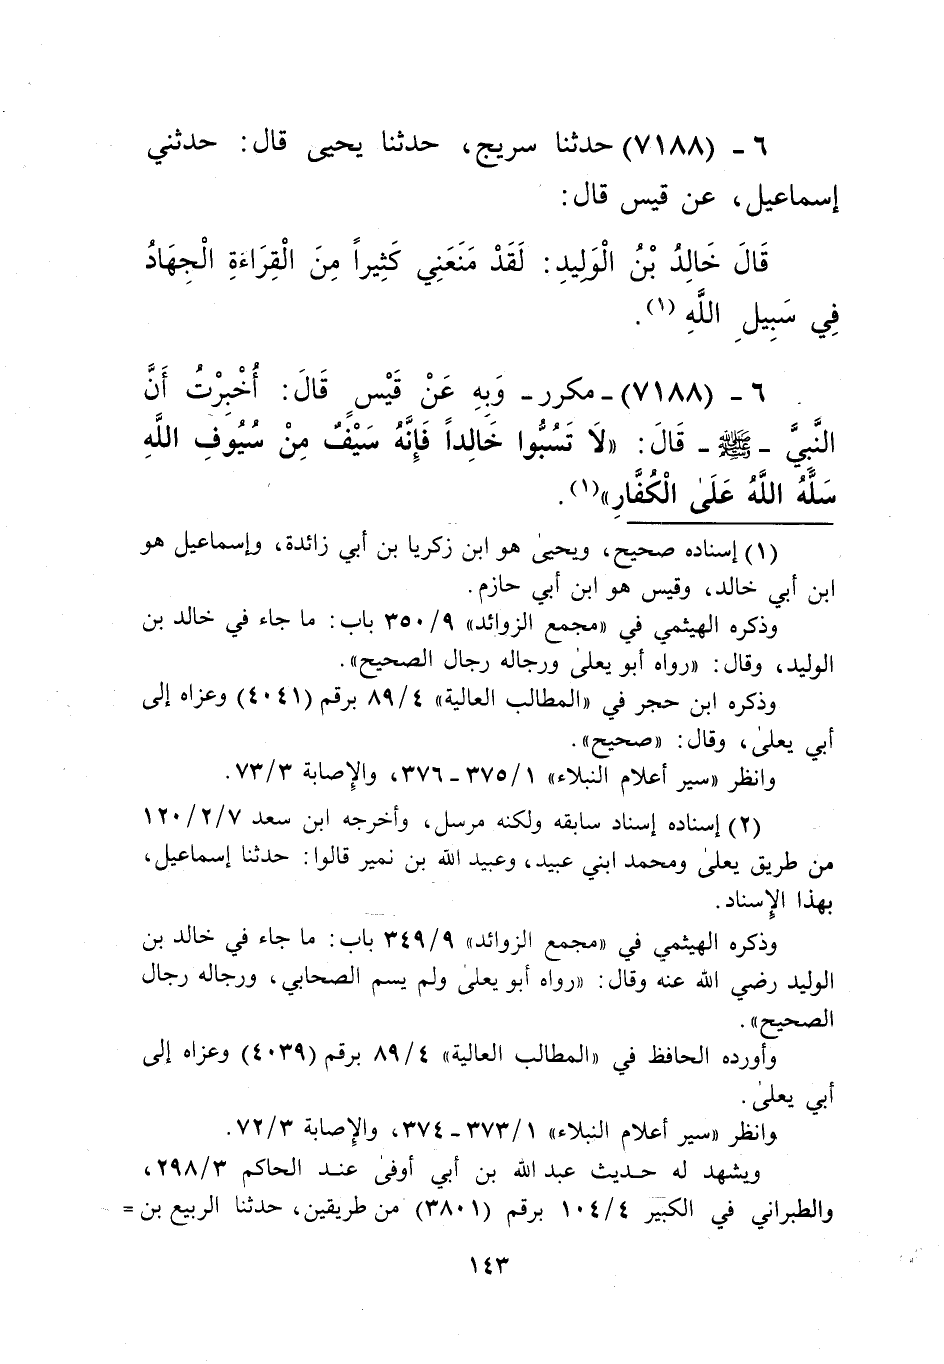 ٦ ـ (٧١٨٨) حدثنا سريج، حدثنا يحيى قال: حدثني
إسماعيل، عن قيس قال:
قَالَ خَالِدُ بْنُ الْوَلِيدِ: لَقَدْ مَنَعَنِي كَثِيراً مِنَ الْقِرَاءَةِ الْجِهَادُ
فِي سَبِيلِ اللَّهِ (١).
٦ ـ (٧١٨٨) ـ مكرر ـ وَبِهِ عَنْ قَيْسٍ قَالَ: أُخْبِرْتُ أَنَّ
النَّبِيَّ ـ ﷺ ـ قَالَ: «لَا تَسُبُّوا خَالِداً فَإِنَّهُ سَيْفٌ مِنْ سُيُوفِ اللَّهِ
سَلَّهُ اللَّهُ عَلَىٰ الْكُفَّارِ»(١).
(١) إسناده صحيح، ويحيىٰ هو ابن زكريا بن أبي زائدة، وإسماعيل هو
ابن أبي خالد، وقيس هو ابن أبي حازم.
وذكره الهيثمي في «مجمع الزوائد» ٣٥٠/٩ باب: ما جاء في خالد بن
الوليد، وقال: «رواه أبو يعلىٰ ورجاله رجال الصحيح».
وذكره ابن حجر في «المطالب العالية» ٨٩/٤ برقم (٤٠٤١) وعزاه إلى
أبي يعلىٰ، وقال: «صحيح».
وانظر «سير أعلام النبلاء» ٣٧٥/١ ـ ٣٧٦، والإصابة ٧٣/٣.
(٢) إسناده إسناد سابقه ولكنه مرسل، وأخرجه ابن سعد ١٢٠/٢/٧
من طريق يعلىٰ ومحمد ابني عبيد، وعبيد الله بن نمير قالوا: حدثنا إسماعيل،
بهذا الإسناد.
وذكره الهيثمي في «مجمع الزوائد» ٣٤٩/٩ باب: ما جاء في خالد بن
الوليد رضي الله عنه وقال: «رواه أبو يعلىٰ ولم يسم الصحابي، ورجاله رجال
الصحيح».
وأورده الحافظ في «المطالب العالية» ٨٩/٤ برقم (٤٠٣٩) وعزاه إلى
أبي يعلىٰ.
وانظر «سير أعلام النبلاء» ٣٧٣/١ ـ ٣٧٤، والإصابة ٧٢/٣.
ويشهد له حديث عبد الله بن أبي أوفىٰ عند الحاكم ٢٩٨/٣،
والطبراني في الكبير ١٠٤/٤ برقم (٣٨٠١) من طريقين، حدثنا الربيع بن =
١٤٣